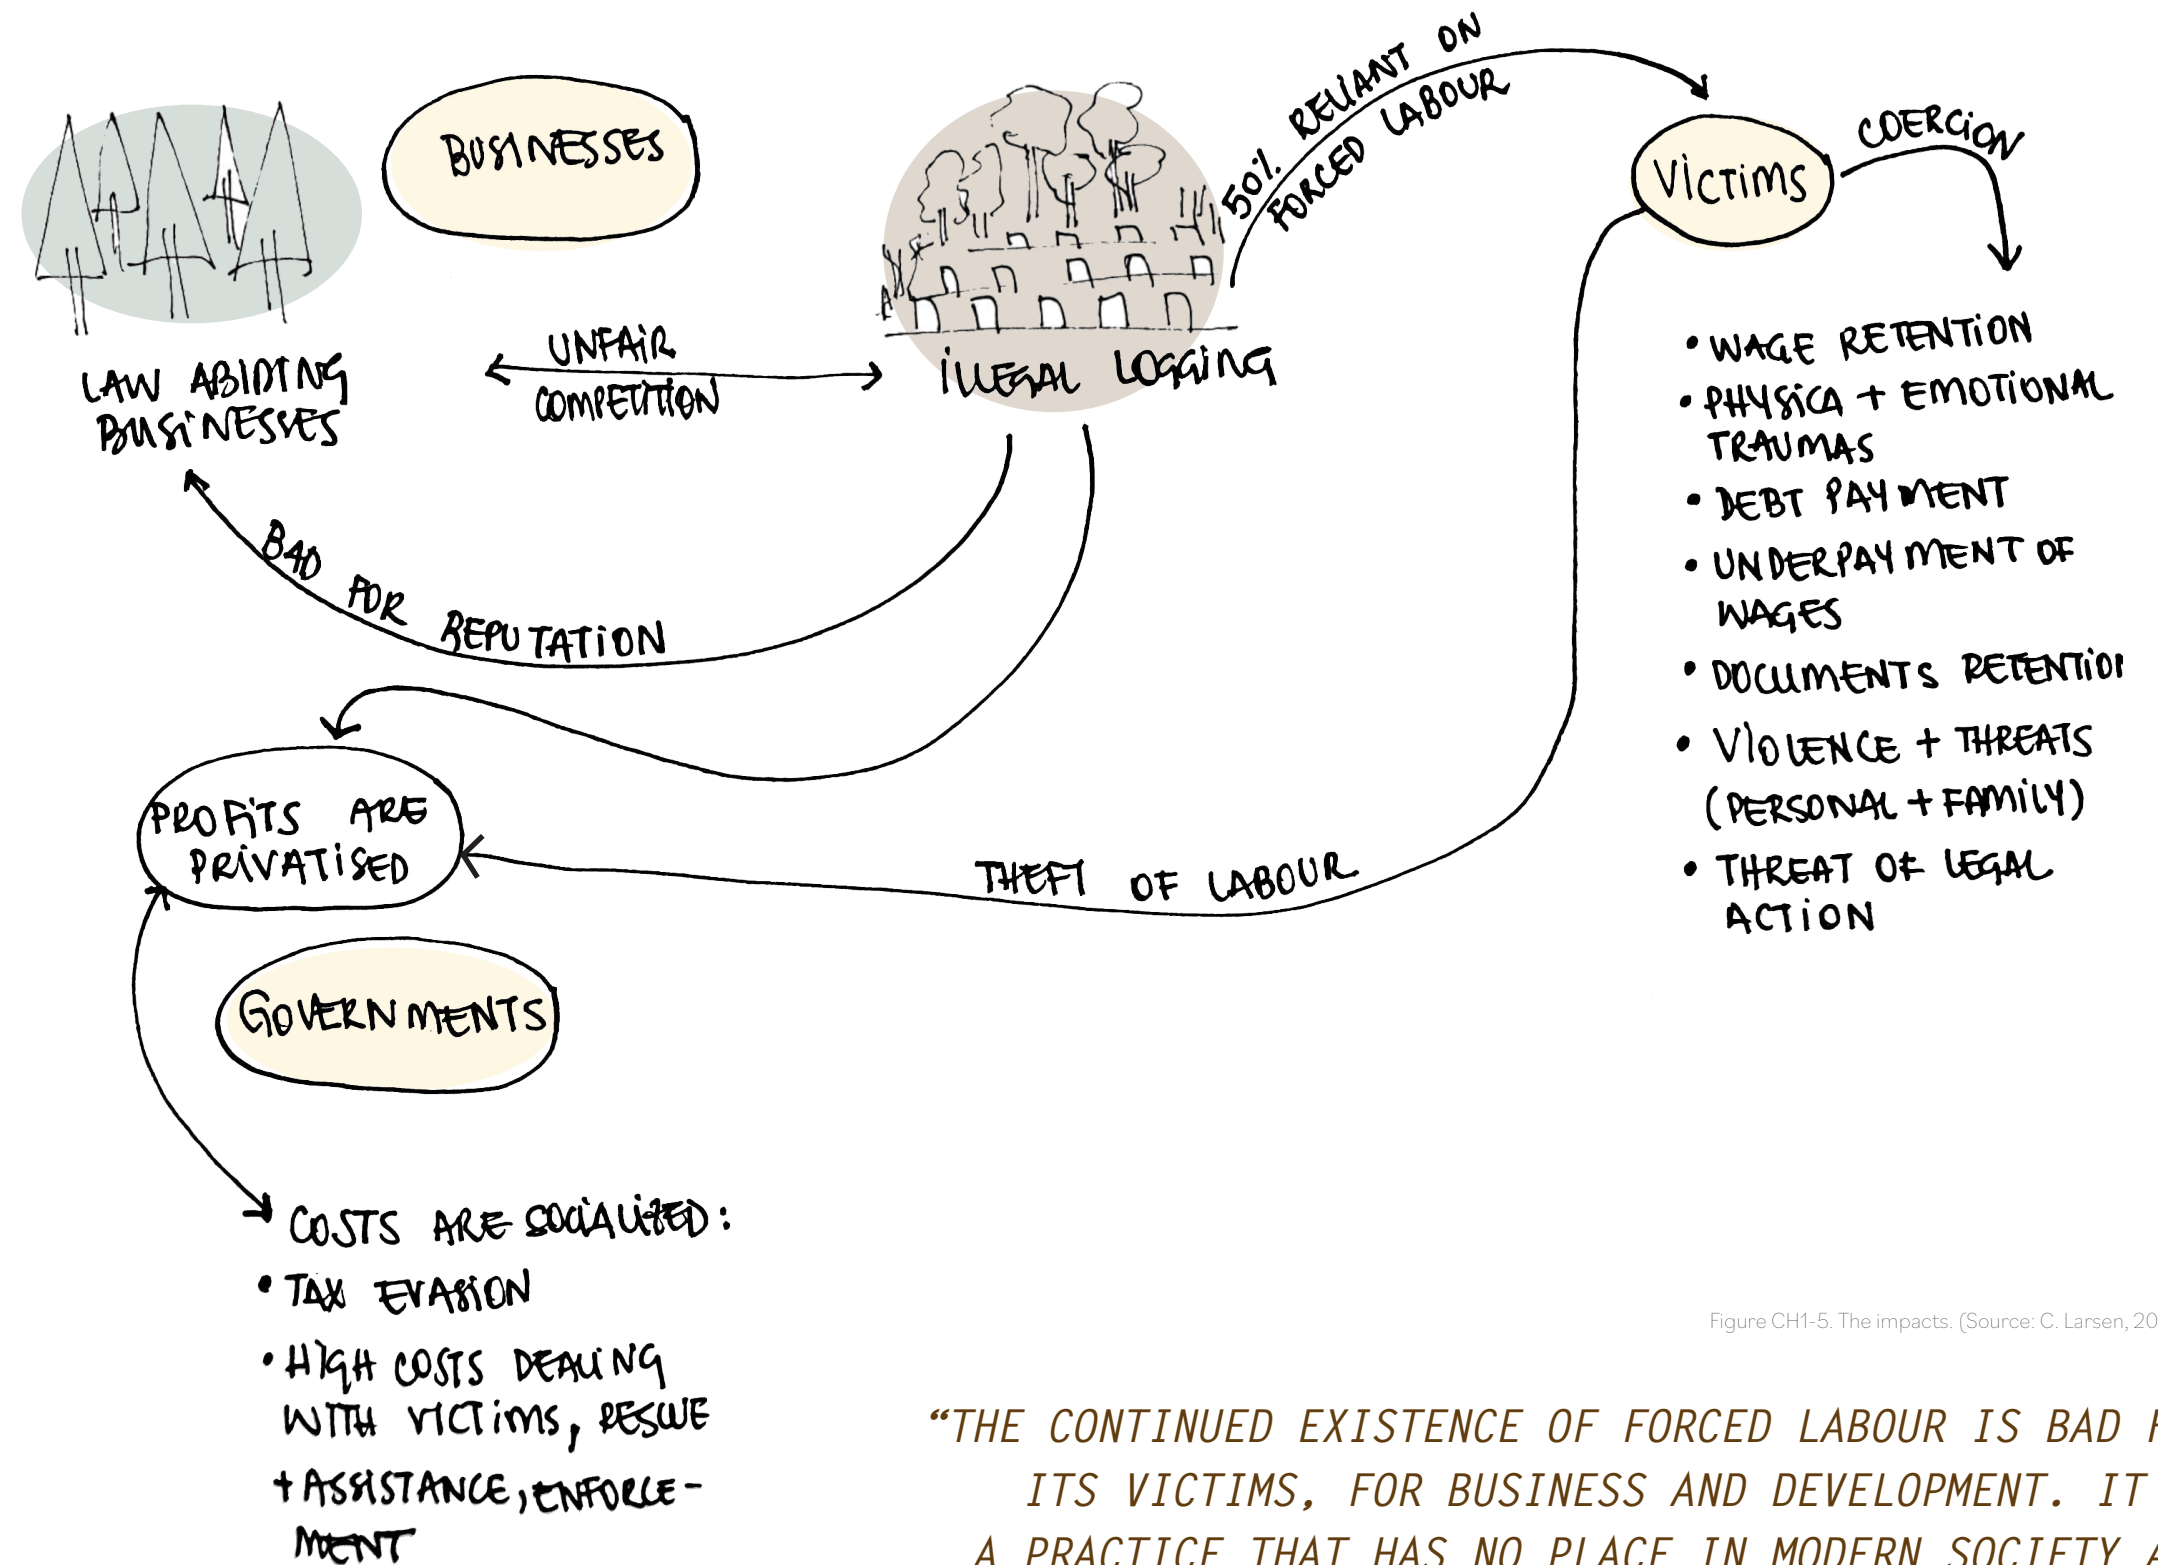 BUSINESSES
LAW ABIDING
BUSINESSES
UNFAIR
COMPETITION
ILLEGAL LOGGING
50% RELIANT ON
FORCED LABOUR
VICTIMS
COERCION
• WAGE RETENTION
• PHYSICA + EMOTIONAL
TRAUMAS
• DEBT PAYMENT
• UNDERPAYMENT OF
WAGES
• DOCUMENTS RETENTION
• VIOLENCE + THREATS
(PERSONAL + FAMILY)
• THREAT OF LEGAL
ACTION
BAD FOR REPUTATION
PROFITS ARE
PRIVATISED
THEFT OF LABOUR
GOVERNMENTS
COSTS ARE SOCIALIZED:
• TAX EVASION
• HIGH COSTS DEALING
WITH VICTIMS, RESCUE
+ ASSISTANCE, ENFORCE-
MENT
Figure CH1-5. The impacts. (Source: C. Larsen, 20
“THE CONTINUED EXISTENCE OF FORCED LABOUR IS BAD
ITS VICTIMS, FOR BUSINESS AND DEVELOPMENT. IT
A PRACTICE THAT HAS NO PLACE IN MODERN SOCIETY